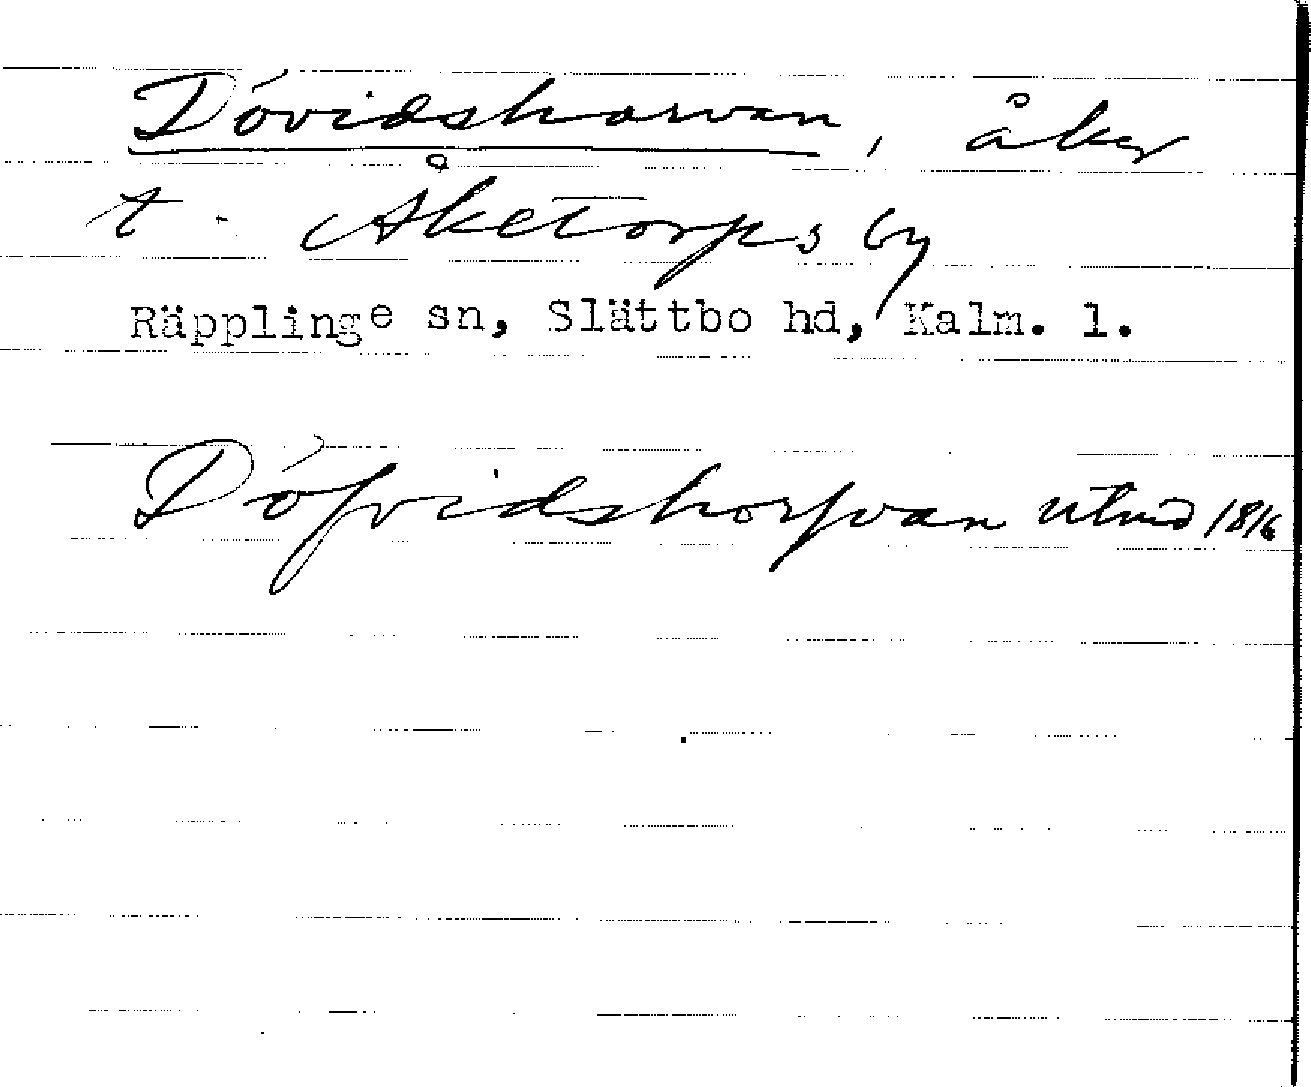 Dövidsharvan, åker
t. Åketorps by
Räpplinge sn, Slättbo hd, Kalm. l.
Döfvidshorfvan utmd 1816